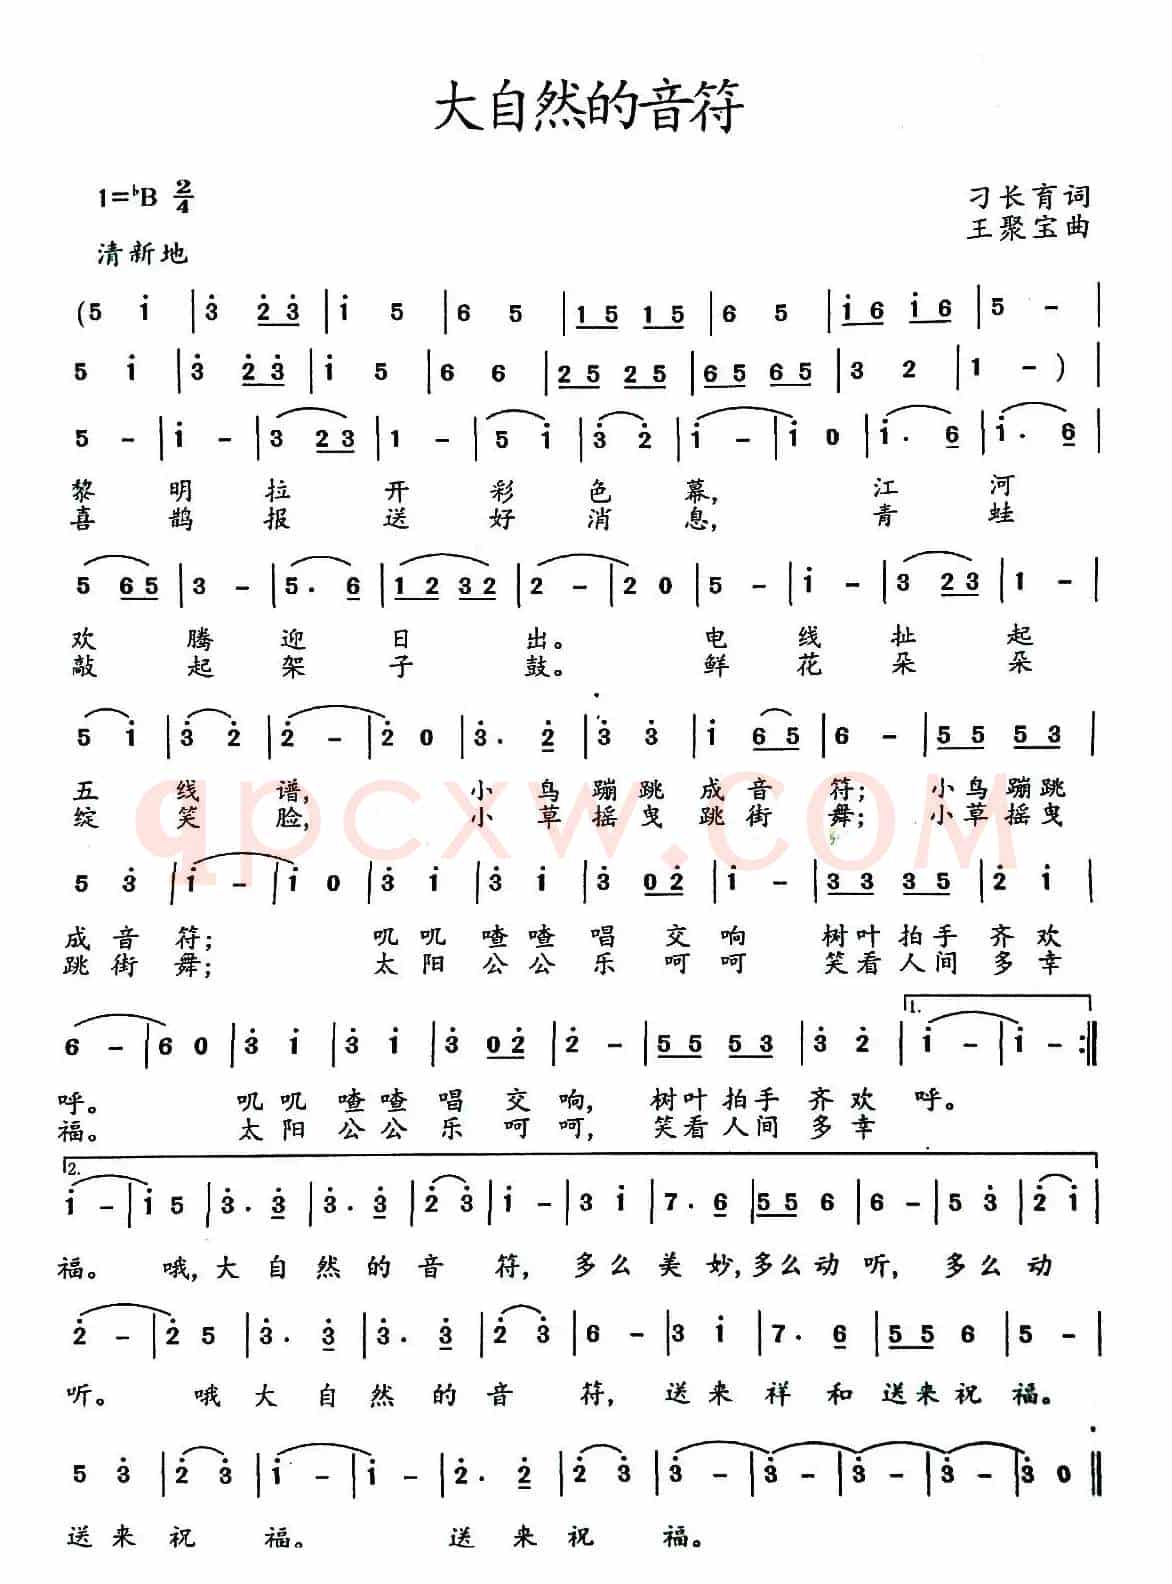 大自然的音符
1=♭B 2/4
刁长育词
王聚宝曲
清新地
(5 i̇ | 3̇ 2̇3̇ | i̇ 5 | 6 5 | 15 15 | 6 5 | i̇6 i̇6 | 5 - |
5 i̇ | 3̇ 2̇3̇ | i̇ 5 | 6 6 | 25 25 | 65 65 | 3 2 | 1 - ) |
5 - | i̇ - | 3 23 | 1 - | 5 i̇ | 3̇ 2̇ | i̇ - | i̇ 0 | i̇. 6 | i̇. 6 |
黎 明 拉 开 彩 色 幕, 江 河
喜 鹊 报 送 好 消 息, 青 蛙
5 65 | 3 - | 5. 6 | 12 32 | 2 - | 2 0 | 5 - | i̇ - | 3 23 | 1 - |
欢 腾 迎 日 出。 电 线 扯 起
敲 起 架 子 鼓。 鲜 花 朵 朵
5 i̇ | 3̇ 2̇ | 2̇ - | 2̇ 0 | 3̇. 2̇ | 3̇ 3̇ | i̇ 65 | 6 - | 55 53̇ |
五 线 谱, 小 鸟 蹦 跳 成 音 符; 小 鸟 蹦 跳
绽 笑 脸, 小 草 摇 曳 跳 街 舞; 小 草 摇 曳
qpcxw.com
5 3̇ | i̇ - | i̇ 0 | 3̇ i̇ | 3̇ i̇ | 3̇ 02̇ | i̇ - | 3̇3̇ 3̇5 | 2̇ i̇ |
成 音 符; 叽 叽 喳 喳 唱 交 响 树 叶 拍 手 齐 欢
跳 街 舞; 太 阳 公 公 乐 呵 呵 笑 看 人 间 多 幸
1.
6 - | 6 0 | 3̇ i̇ | 3̇ i̇ | 3̇ 02̇ | 2̇ - | 55 53̇ | 3̇ 2̇ | i̇ - | i̇ - :||
呼。 叽 叽 喳 喳 唱 交 响, 树 叶 拍 手 齐 欢 呼。
福。 太 阳 公 公 乐 呵 呵, 笑 看 人 间 多 幸
2.
i̇ - | i̇ 5 | 3̇. 3̇ | 3̇. 3̇ | 2̇ 3̇ | i̇ - | 3 i̇ | 7. 6 | 55 6 | 6 - | 5 3̇ | 2̇ i̇ |
福。 哦, 大 自 然 的 音 符, 多 么 美 妙, 多 么 动 听, 多 么 动
2̇ - | 2̇ 5 | 3̇. 3̇ | 3̇. 3̇ | 2̇ 3̇ | 6 - | 3 i̇ | 7. 6 | 55 6 | 5 - |
听。 哦 大 自 然 的 音 符, 送 来 祥 和 送 来 祝 福。
5 3̇ | 2̇ 3̇ | i̇ - | i̇ - | 2̇. 2̇ | 2̇ 3̇ | 3̇ - | 3̇ - | 3̇ - | 3̇ - | 3̇ 0 ||
送 来 祝 福。 送 来 祝 福。